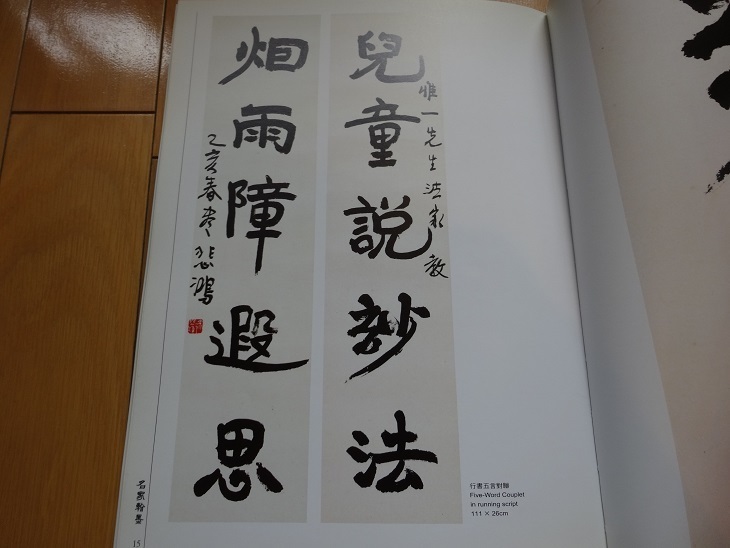 兒童說玅法
惟一先生法家教
烟雨障遐思
乙亥春尽 悲鴻
行書五言對聯
Five-Word Couplet
in running script
111 × 26cm
名家翰墨
15